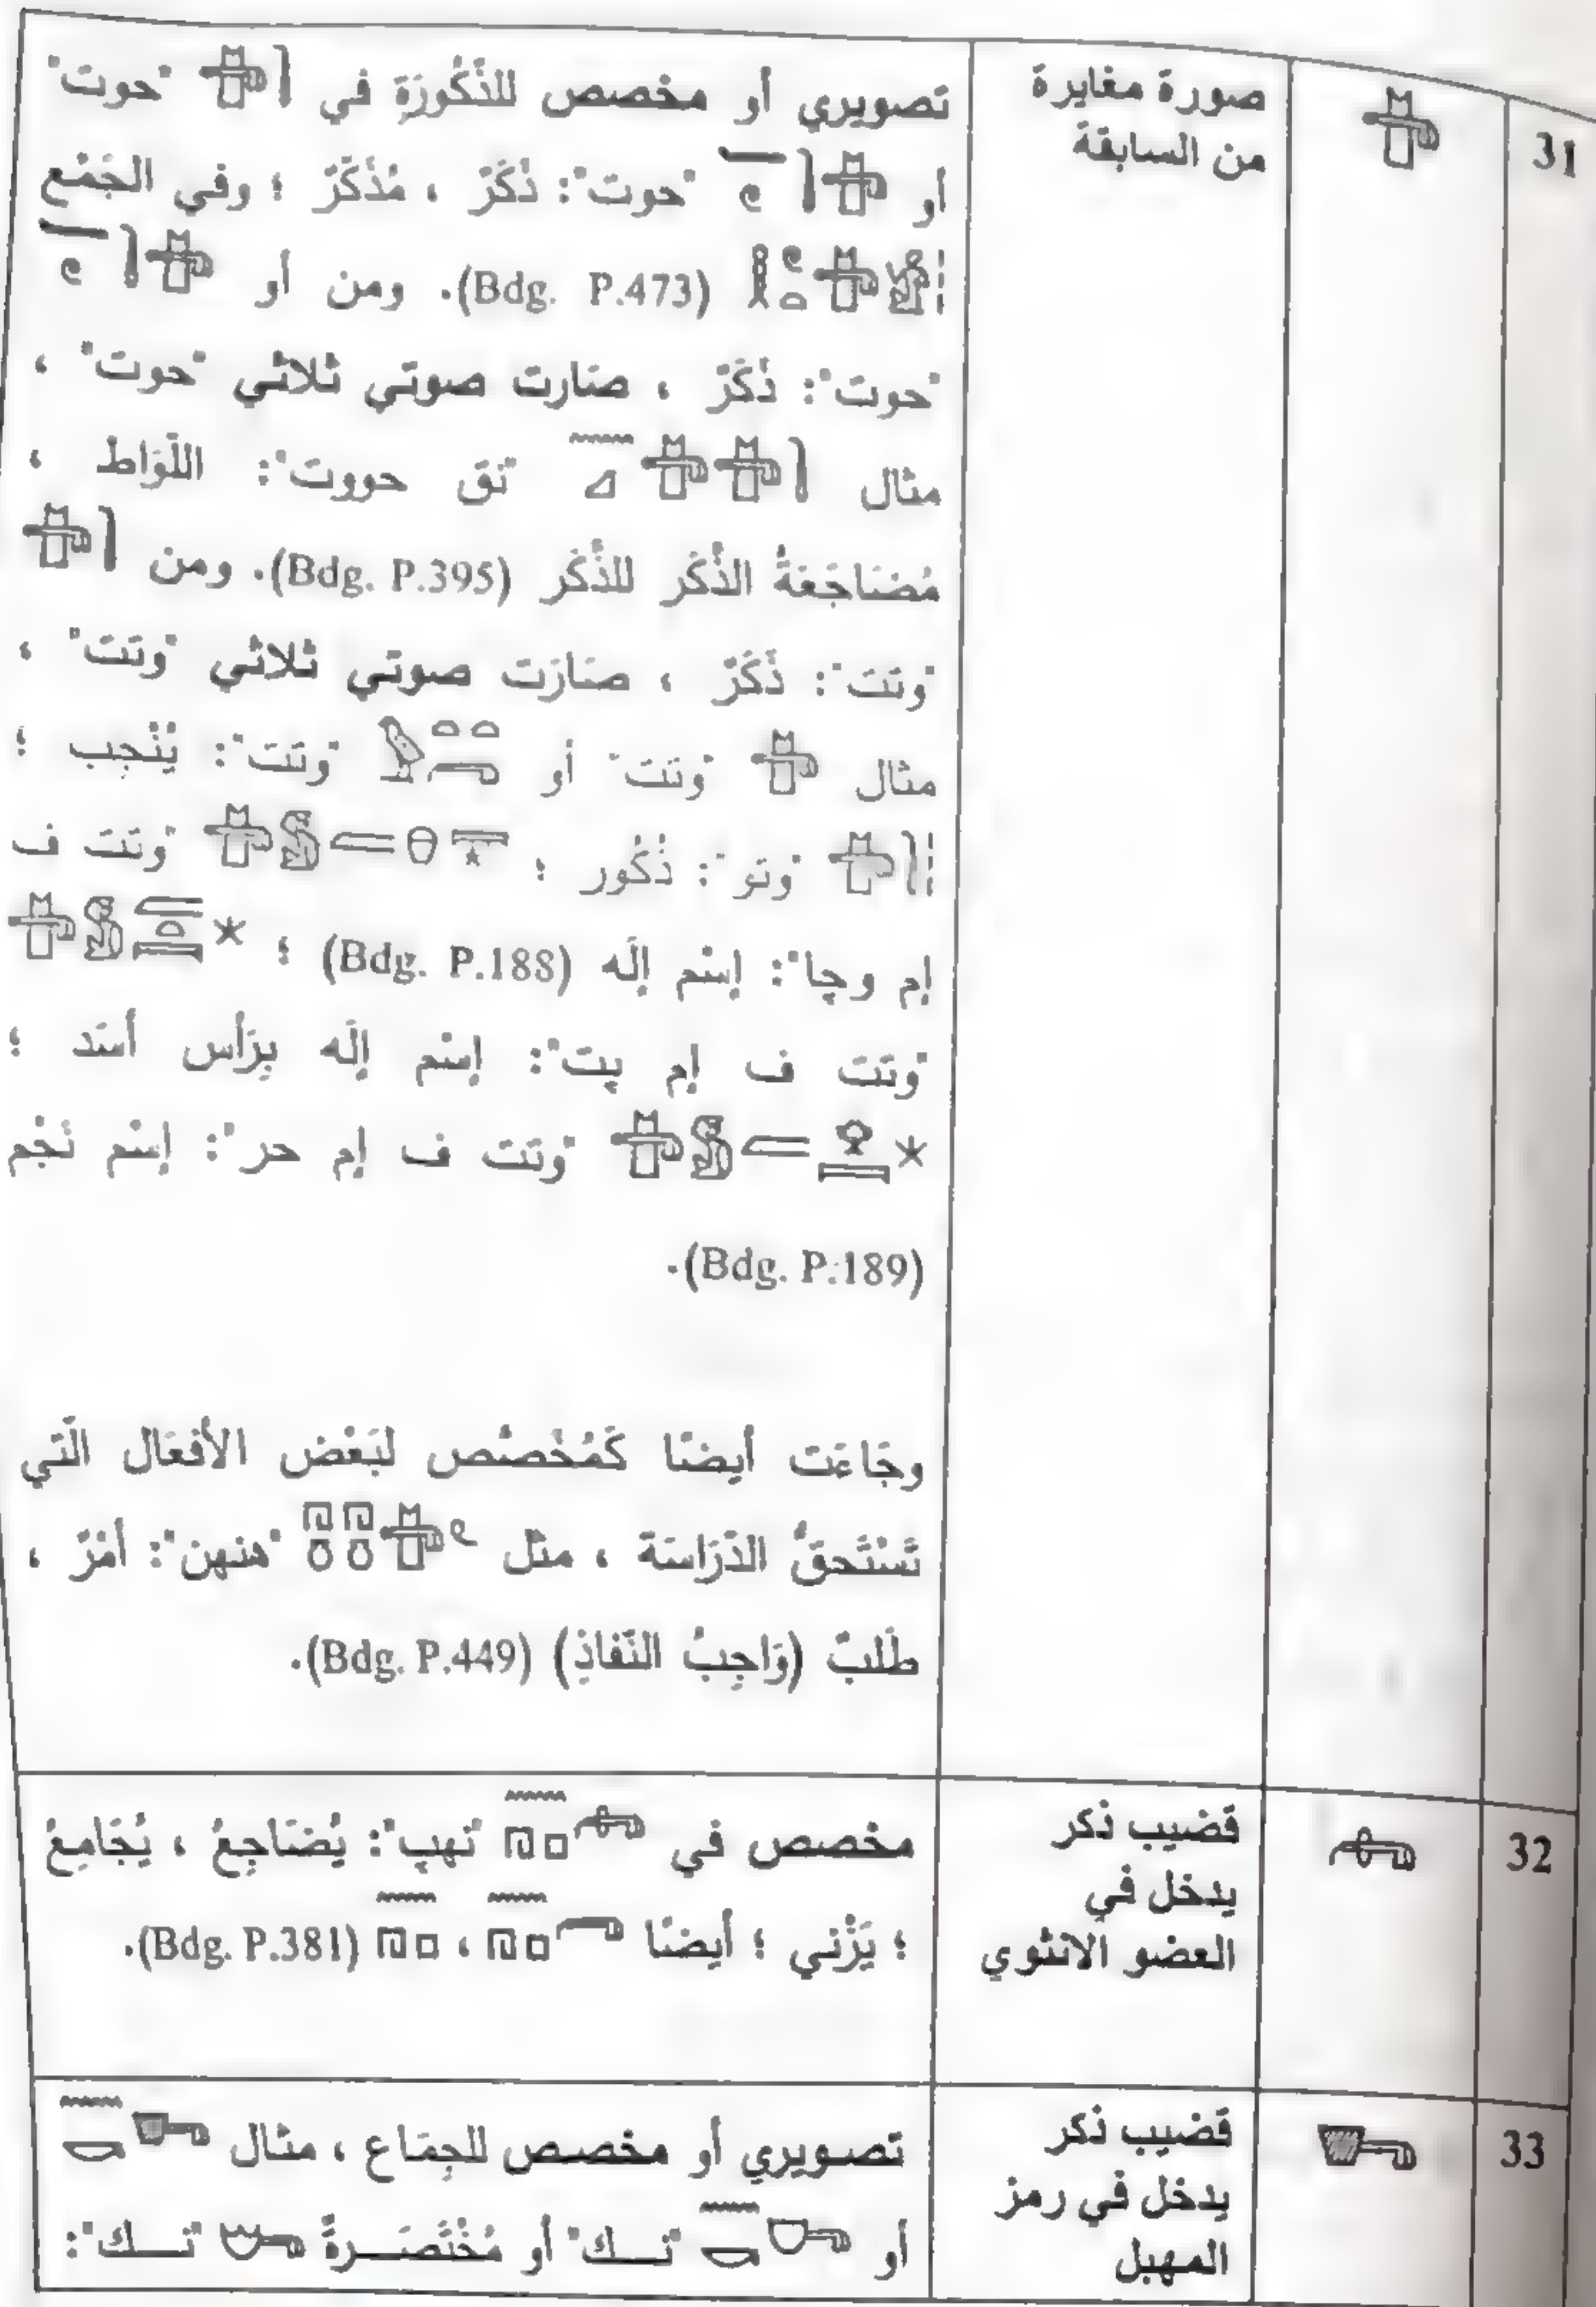 31
صورة مغايرة
من السابقة
تصويري أو مخصص للذُّكُورَةِ في "حوت"
أو "حوت": ذَكَرٌ ، مُذَكَّرٌ ؛ وفي الجَمْع
(Bdg. P.473). ومن أو
"حوت": ذَكَرٌ ، صَارت صوتي ثلاثي "حوت" ،
مثال "نق حووت": اللِّوَاط ،
مُضَاجَعَةُ الذَّكَر للذَّكَر (Bdg. P.395). ومن
"وتت": ذَكَرٌ ، صَارَت صوتي ثلاثي "وتت" ،
مثال "وتت" أو "وتت": يُنْجِب ؛
"وتو": ذُكُور ؛ "وتت ف
إم وچا": إسْم إلَه (Bdg. P.188) ؛
"وتت ف إم پت": إسْم إلَه بِرَأس أسَد ؛
"وتت ف إم حر": إسْم نَجْم
(Bdg. P.189).
وجَاءَت أيضًا كَمُخْصَّص لبَعْض الأفعَال الَّتي
تَسْتَحقُّ الدِّرَاسَة ، مثل "هنهن": أمْرٌ ،
طَلَبٌ (وَاجِبُ النَّفاذِ) (Bdg. P.449).
32
قضيب ذكر
يدخل في
العضو الانثوي
مخصص في "نهپ": يُضَاجِعُ ، يُجَامِعُ
؛ يَزْني ؛ أيضًا ، (Bdg. P.381).
33
قضيب ذكر
يدخل في رمز
المهبل
تصـويري أو مخصـص للجِمَاع ، مثال
أو "نـــك" أو مُخْتَصَـــرةً "نـــك":